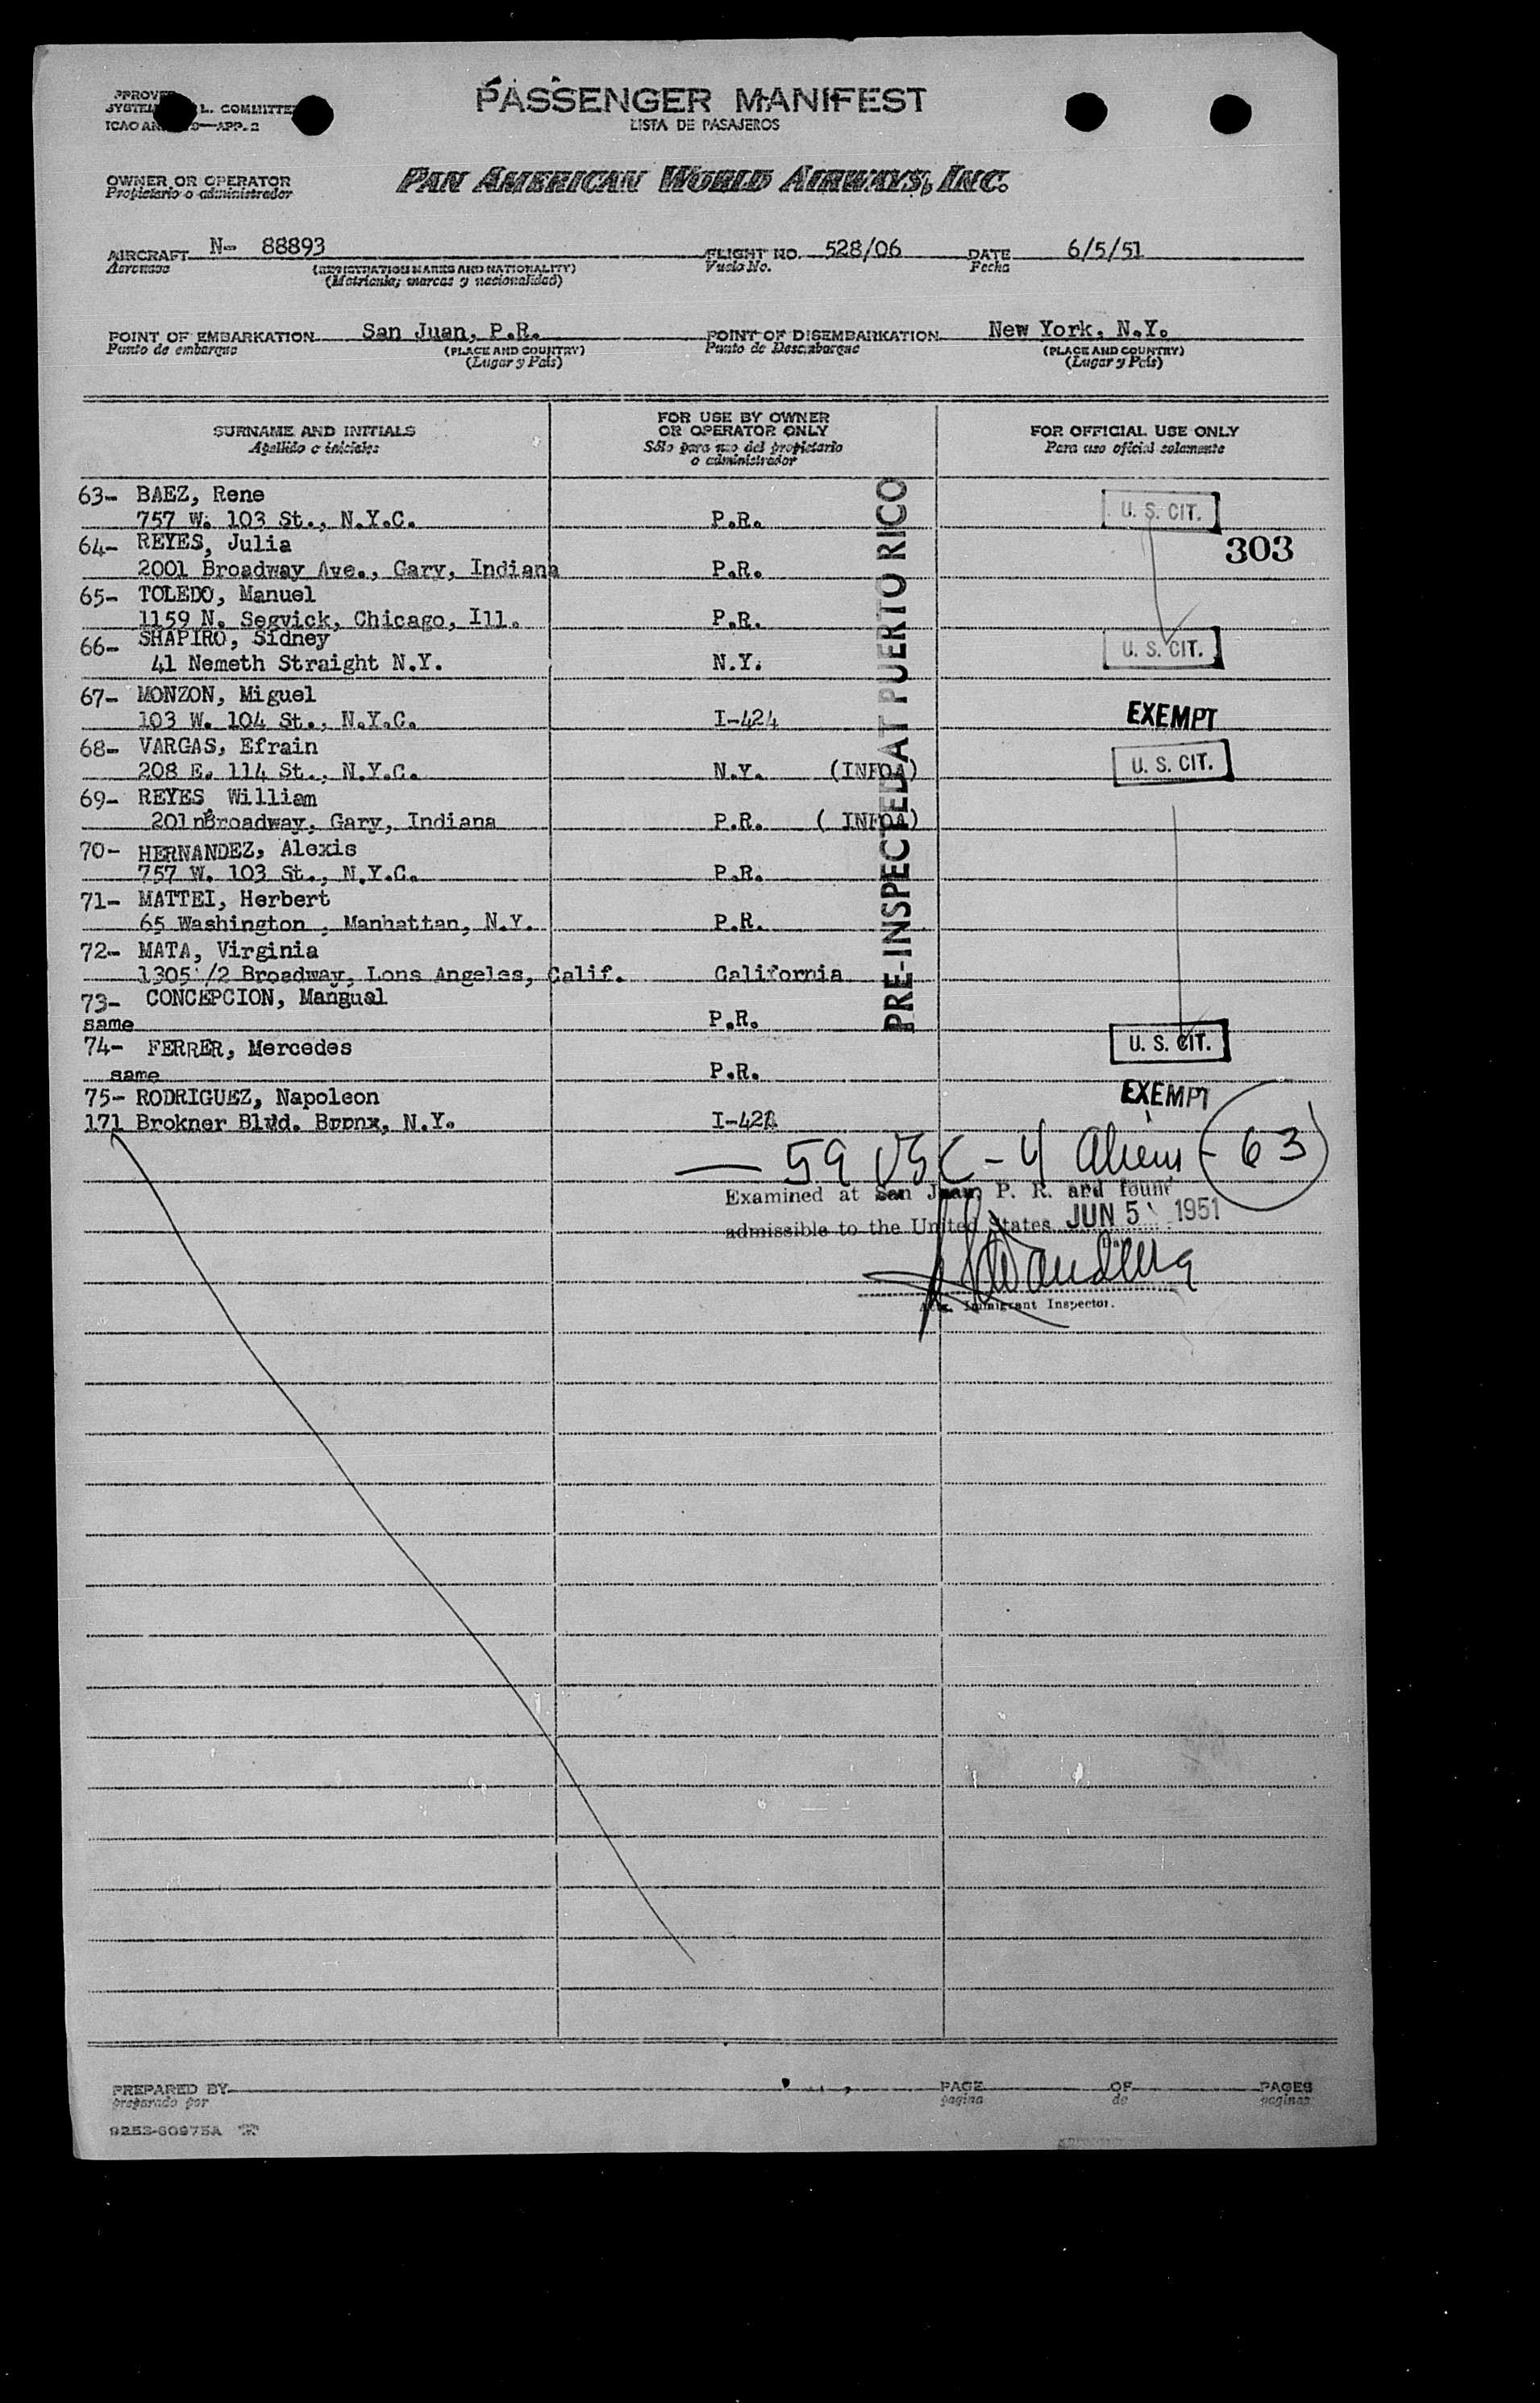 PASSENGER MANIFEST
LISTA DE PASAJEROS
L. COMMITTEE
APP. 2
OWNER OR OPERATOR
Propietario o administrador
PAN AMERICAN WORLD AIRWAYS, INC.
AIRCRAFT N- 88893 FLIGHT NO. 528/06 DATE 6/5/51
Aeronave (REGISTRATION MARKS AND NATIONALITY) Vuelo No. Fecha
(Matricula; marcas y nacionalidad)
POINT OF EMBARKATION San Juan, P.R. POINT OF DISEMBARKATION New York, N.Y.
Punto de embarque (PLACE AND COUNTRY) Punto de Desembarque (PLACE AND COUNTRY)
(Lugar y País) (Lugar y País)
SURNAME AND INITIALS
Apellido e iniciales
FOR USE BY OWNER
OR OPERATOR ONLY
Sólo para uso del propietario
o administrador
FOR OFFICIAL USE ONLY
Para uso oficial solamente
PRE-INSPECTED AT PUERTO RICO
63- BAEZ, Rene
757 W. 103 St., N.Y.C. P.R. U. S. CIT.
303
64- REYES, Julia
2001 Broadway Ave., Gary, Indiana P.R.
65- TOLEDO, Manuel
1159 N. Segvick, Chicago, Ill. P.R.
66- SHAPIRO, Sidney
41 Nemeth Straight N.Y. N.Y. U. S. CIT.
67- MONZON, Miguel
103 W. 104 St., N.Y.C. I-424 EXEMPT
68- VARGAS, Efrain
208 E. 114 St., N.Y.C. N.Y. (INFOA) U. S. CIT.
69- REYES, William
201nBroadway, Gary, Indiana P.R. ( INFOA)
70- HERNANDEZ, Alexis
757 W. 103 St., N.Y.C. P.R.
71- MATTEI, Herbert
65 Washington , Manhattan, N.Y. P.R.
72- MATA, Virginia
1305 /2 Broadway, Lons Angeles, Calif. California
73- CONCEPCION, Mangual
same P.R.
U. S. CIT.
74- FERRER, Mercedes
same P.R.
75- RODRIGUEZ, Napoleon EXEMPT
171 Brokner Blvd. Bronx, N.Y. I-424
59 USC - 4 Aliens - 63
Examined at San Juan, P. R. and found
admissible to the United States JUN 5 1951
Immigrant Inspector.
PREPARED BY PAGE OF PAGES
preparado por pagina de paginas
9253-60975A